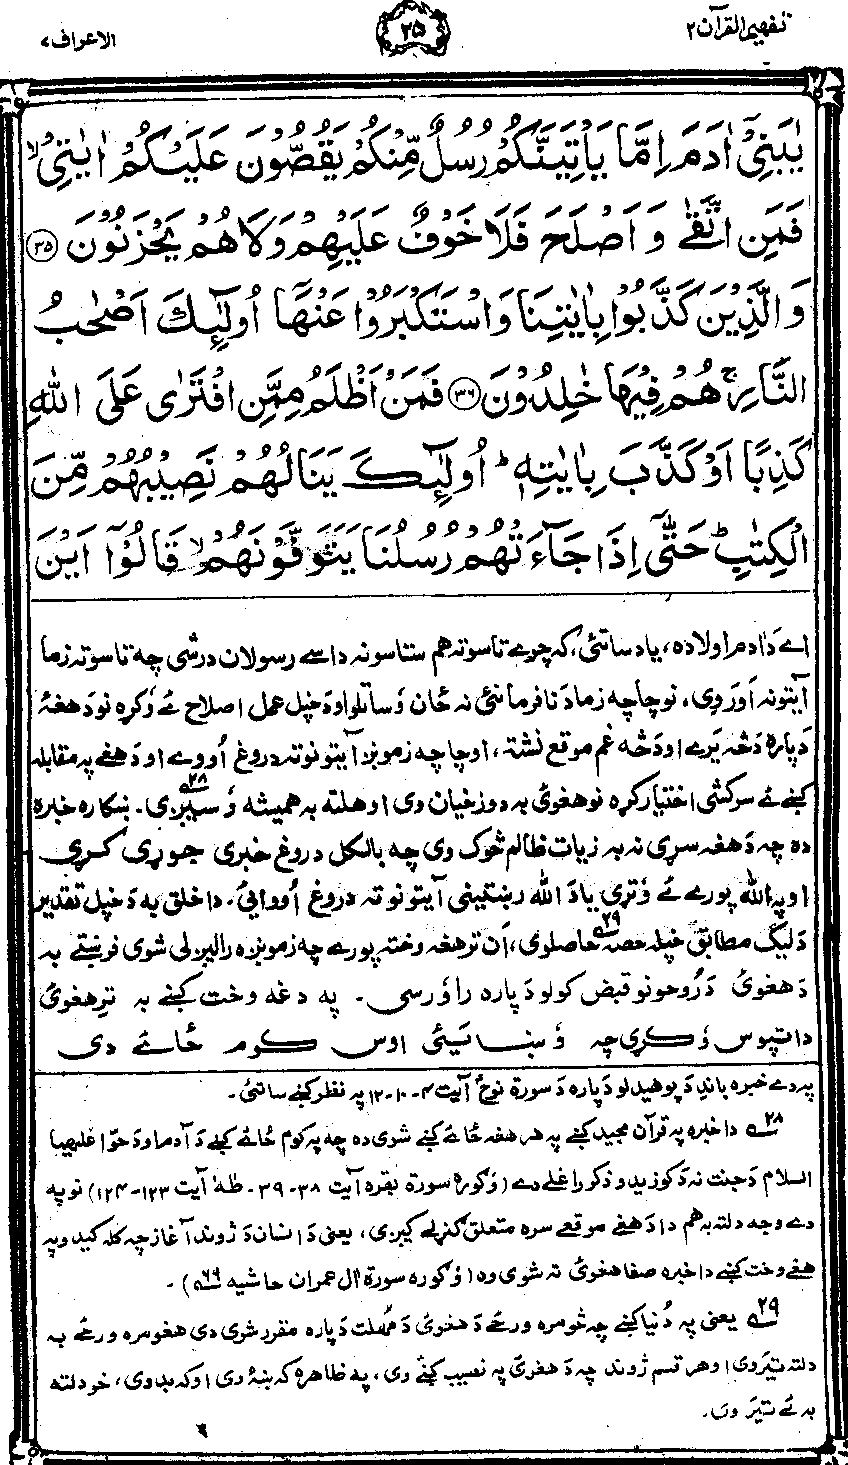 تفہیم القرآن ۲
۳۵
الاعراف ۷
یٰبَنِیْۤ اٰدَمَ اِمَّا یَاْتِیَنَّكُمْ رُسُلٌ مِّنْكُمْ یَقُصُّوْنَ عَلَیْكُمْ اٰیٰتِیْ ۙ
فَمَنِ اتَّقٰى وَ اَصْلَحَ فَلَا خَوْفٌ عَلَیْهِمْ وَلَا هُمْ یَحْزَنُوْنَ ﴿۳۵﴾
وَ الَّذِیْنَ كَذَّبُوْا بِاٰیٰتِنَا وَاسْتَكْبَرُوْا عَنْهَاۤ اُولٰٓىِٕكَ اَصْحٰبُ
النَّارِ ۚ هُمْ فِیْهَا خٰلِدُوْنَ ﴿۳۶﴾ فَمَنْ اَظْلَمُ مِمَّنِ افْتَرٰى عَلَى اللّٰهِ
كَذِبًا اَوْ كَذَّبَ بِاٰیٰتِهٖ ؕ اُولٰٓىِٕكَ یَنَالُهُمْ نَصِیْبُهُمْ مِّنَ
الْكِتٰبِ ؕ حَتّٰۤى اِذَا جَآءَتْهُمْ رُسُلُنَا یَتَوَفَّوْنَهُمْ ۙ قَالُوْۤا اَیْنَ
اے دَ آدم اولادہ، یاد ساتئی، کہ چرے تاسو تہ ہم ستاسو نہ داسے رسولان درشی چہ تاسو تہ زما
آیتونہ اوروی، نو چا چہ زما دَ نافرمانئی نہ ځان وساتلو او دَ خپل عمل اصلاح ئے وکړہ نو دَ ھغہٗ
دَپارہ دَ څہ یَرے او دَ څہ غم موقع نشتہ، او چا چہ زمونږ آیتونو تہ دروغ اووے او دَ ھغے پہ مقابلہ
کښے ئے سرکشی اختیار کړہ نو ھغوئ بہ دوزخیان وی او ھلتہ بہ ہمیشہ وسیږی۔۲۸ ښکارہ خبرہ
دہ چہ دَ ھغہ سړی نہ بہ زیات ظالم څوک وی چہ بالکل دروغ خبرې جوړې کړي
او پہ اللہ پورے ئے وتړی یا دَ اللہ رښتینی آیتونو تہ دروغ اووائی۔ دا خلق بہ دَ خپل تقدیر
دَ لیک مطابق خپلہ حصہ حاصلوی،۲۹ اَن تر ھغہ وختہ پورے چہ زمونږہ رالیږلی شوی فرښتے بہ
دَ ھغوئ دَ رُوحونو قبض کولو دَپارہ را ورسی۔ پہ دغہ وخت کښے بہ تر ھغوئ
دا تپوس وکړی چہ وښائیئی اوس کوم ځائے دی
پہ دے خبرہ باندِ دَ پوھیدلو دَپارہ دَ سورۃ نوحؑ آیت ۴-۱۰-۱۲ پہ نظر کښے ساتئ۔
۲۸ دا خبرہ پہ قرآن مجید کښے پہ ھر ھغہ ځائے کښے شوی دہ چہ پہ کوم ځائے کښے دَ آدم او دَ حوّا علیہما
السلام دَ جنت نہ دَ کوزیدو ذکر راغلے دے (وګورہ سورۃ بقرہ آیت ۳۸-۳۹۔ طٰہٰ آیت ۱۲۳-۱۲۴) نو پہ
دے وجہ دلتہ ہم دا دَ ھغے موقعے سرہ متعلق ګنړلے کیږی، یعنی دَ انسان دَ ژوند آغاز چہ کلہ کیدو پہ
ھغے وخت کښے دا خبرہ صفا ھغوئ تہ شوی وہ (وګورہ سورۃ اٰل عمران حاشیہ ۶۹)۔
۲۹ یعنی پہ دُنیا کښے چہ څومرہ ورځے دَ ھغوئ دَ مُہلت دَپارہ مقرر شوی دی ھغومرہ ورځے بہ
دلتہ تیروی او ھر قسم ژوند چہ دَ ھغوئ پہ نصیب کښے وی، پہ ظاھرہ کہ ښۂ وی او کہ بد وی، خو دلتہ
بہ ئے تیروی۔